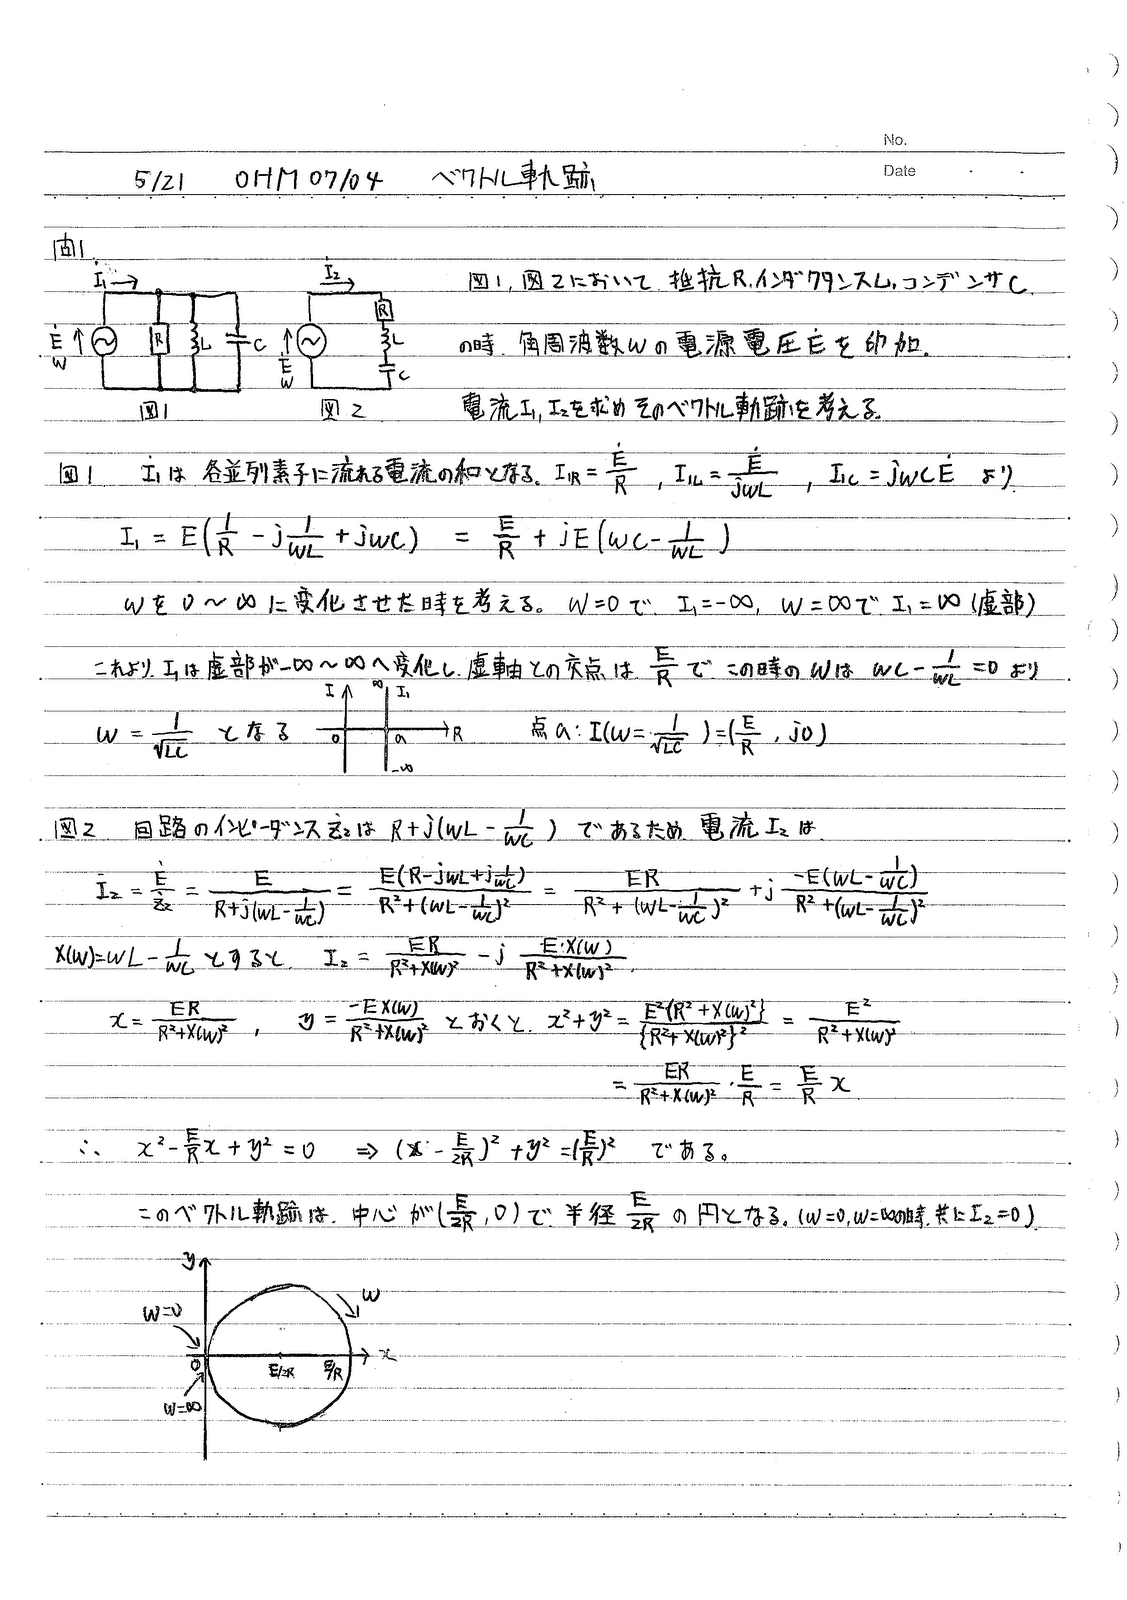 No.
Date
5/21 OHM 07/04 ベクトル軌跡
問1.
İ₁ → İ₂ →
Ė ↑ ω R L C Ė ↑ ω R L C
図1 図2
図1, 図2において 抵抗R, インダクタンスL, コンデンサC
の時, 角周波数ωの電源電圧Ėを印加.
電流I₁, I₂を求めそのベクトル軌跡を考える.
図1 İ₁は 各並列素子に流れる電流の和となる. I₁R = Ė/R , I₁L = Ė/jωL , I₁C = jωCĖ より
I₁ = E(1/R - j 1/ωL + jωC) = E/R + jE(ωC - 1/ωL)
ωを0~∞に変化させた時を考える。 ω=0で I₁=-∞, ω=∞で I₁=∞ (虚部)
これより, I₁は虚部が-∞~∞へ変化し, 虚軸との交点は E/R で この時のωは ωC - 1/ωL = 0 より
ω = 1/√LC となる I ∞ I₁ 0 a R -∞ 点a: I(ω = 1/√LC) = (E/R , j0)
図2 回路のインピーダンスż₂は R+j(ωL - 1/ωC) であるため 電流I₂は
İ₂ = Ė/ż₂ = E/(R+j(ωL - 1/ωC)) = E(R-jωL+j 1/ωC)/(R²+(ωL - 1/ωC)²) = ER/(R²+(ωL - 1/ωC)²) + j -E(ωL - 1/ωC)/(R²+(ωL - 1/ωC)²)
X(ω)=ωL - 1/ωC とすると, I₂ = ER/(R²+X(ω)²) - j E·X(ω)/(R²+X(ω)²)
x = ER/(R²+X(ω)²) , y = -EX(ω)/(R²+X(ω)²) とおくと, x²+y² = E²{R²+X(ω)²}/{R²+X(ω)²}² = E²/(R²+X(ω)²)
= ER/(R²+X(ω)²) · E/R = E/R x
∴ x² - E/R x + y² = 0 ⇒ (x - E/2R)² + y² = (E/R)² である。
このベクトル軌跡は, 中心が(E/2R, 0)で, 半径 E/2R の円となる. (ω=0, ω=∞の時, 共にI₂=0)
y
ω
ω=0
0 E/2R E/R x
ω=∞